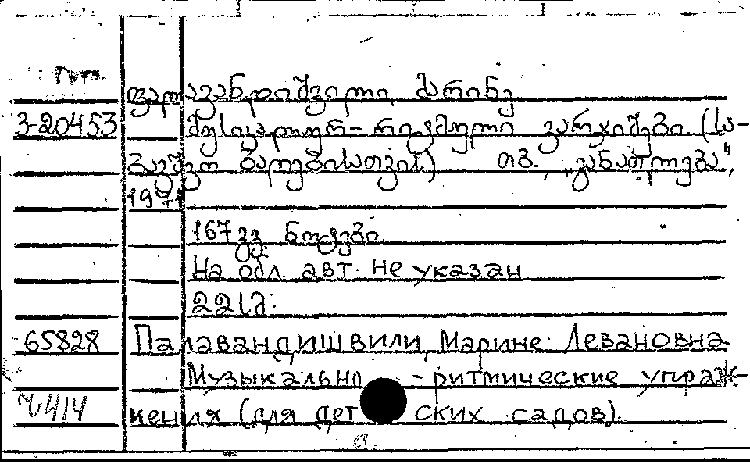 ფალავანდიშვილი, მარინე
3-20453 მუსიკალურ-რიტმული ვარჯიშები (სა-
ბავშვო ბაღებისათვის) თბ. „განათლება",
1971
167 გვ ნოტები
На обл. авт. не указан
65828 Палавандишвили, Марине Левановна
Музыкально-ритмические упраж-
нения (для детских садов).